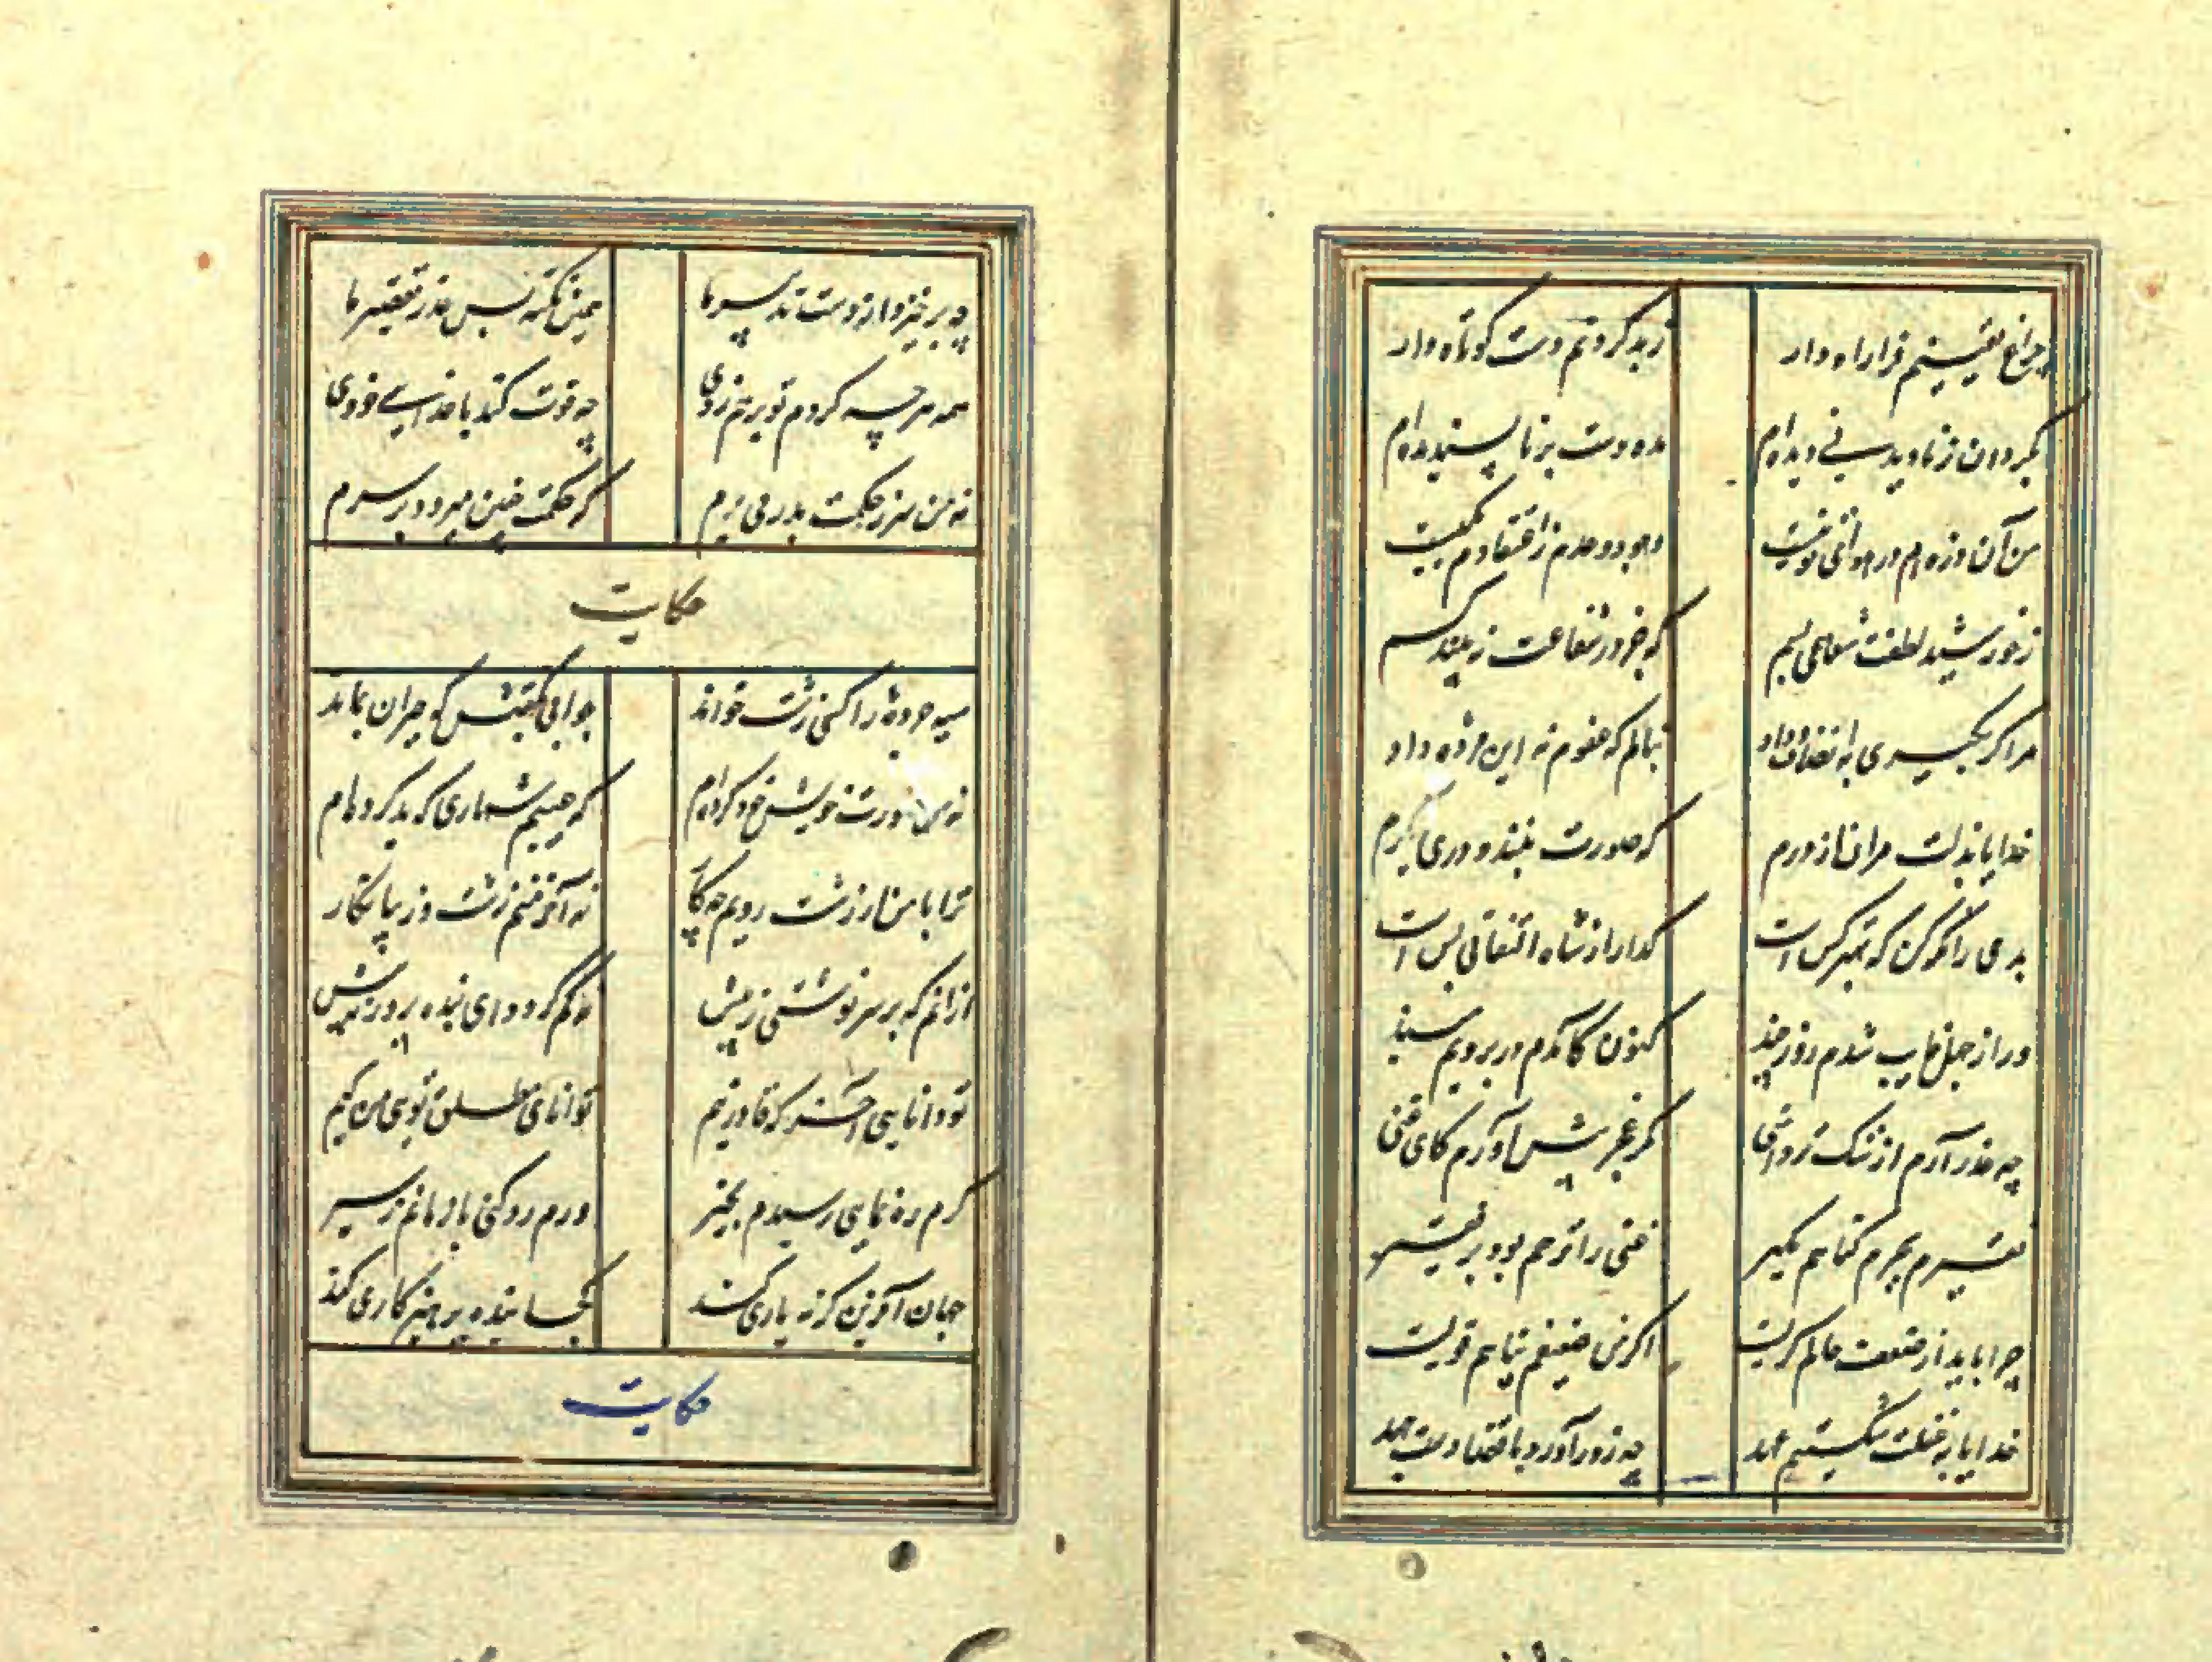 چراغ یقینم فرا راه دار ز بد کردنم دست کوتاه دار
بگردان ز نادیدنی دیده‌ام مده دست بر ناپسندیده‌ام
من آن ذره‌ام در هوای تو نیست وجود و عدم ز احتقارم یکیست
ز خورشید لطفت شعاعی بسم که جز در شعاعت نبیند کسم
مرا گر بگیری به انصاف و داد بنالم که عفوم نه این وعده داد
خدایا بذلت مران از درم که صورت نبندد دری دیگرم
بدی را نگه کن که بهتر کس است گدا را ز شاه التفاتی بس است
ور از جهل غایب شدم روز چند کنون کامدم در برویم مبند
چه عذر آرم از ننگ تردامنی مگر عجز پیش آورم کای غنی
فقیرم بجرم گناهم مگیر غنی را ترحم بود بر فقیر
چرا باید از ضعف حالم گریست اگر من ضعیفم پناهم قویست
خدایا به غفلت شکستیم عهد چه زور آورد با قضا دست جهد
چه برخیزد از دست تدبیر ما همین نکته بس عذر تقصیر ما
همه هرچه کردم تو بر هم زدی چه قوت کند با خدایی خودی
نه من سر ز حکمت بدر می برم که حکمت چنین میرود بر سرم
حکایت
سیه چرده‌ را کسی زشت خواند جوابی بگفتش که حیران بماند
نه من صورت خویش خود کرده‌ام که عیبم شماری که بد کرده‌ام
ترا با من ار زشت رویم چه کار نه آخر منم زشت و زیبا نگار
از آنم که بر سر نوشتی ز پیش نه کم کردم ای بنده پرور نه بیش
تو دانایی آخر که قادر نیم توانای مطلق توئی من کیم
گرم ره نمایی رسیدم بخیر ورم رد کنی باز مانم ز سیر
جهان آفرین گر نه یاری کند کجا بنده پرهیزکاری کند
حکایت